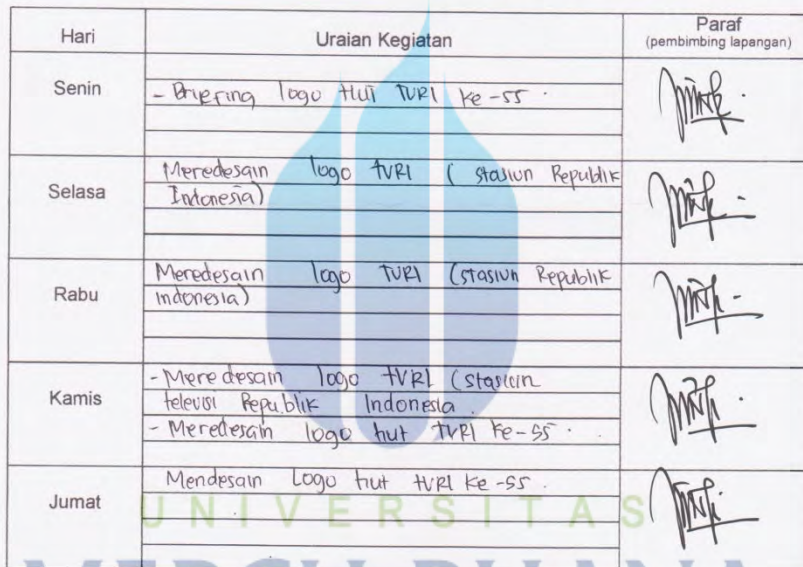 Hari Uraian Kegiatan Paraf
(pembimbing lapangan)
Senin - Briefing logo Hut TVRI ke-55.
Selasa Meredesain logo tVRI ( stasiun Republik
Indonesia)
Rabu Meredesain logo TVRI (stasiun Republik
indonesia)
Kamis - Meredesain logo tVRI (stasiun
televisi Republik Indonesia.
- Meredesain logo hut TVRI ke-55.
Jumat Mendesain Logo hut tVRI ke-55.
UNIVERSITAS
MERCU BUANA